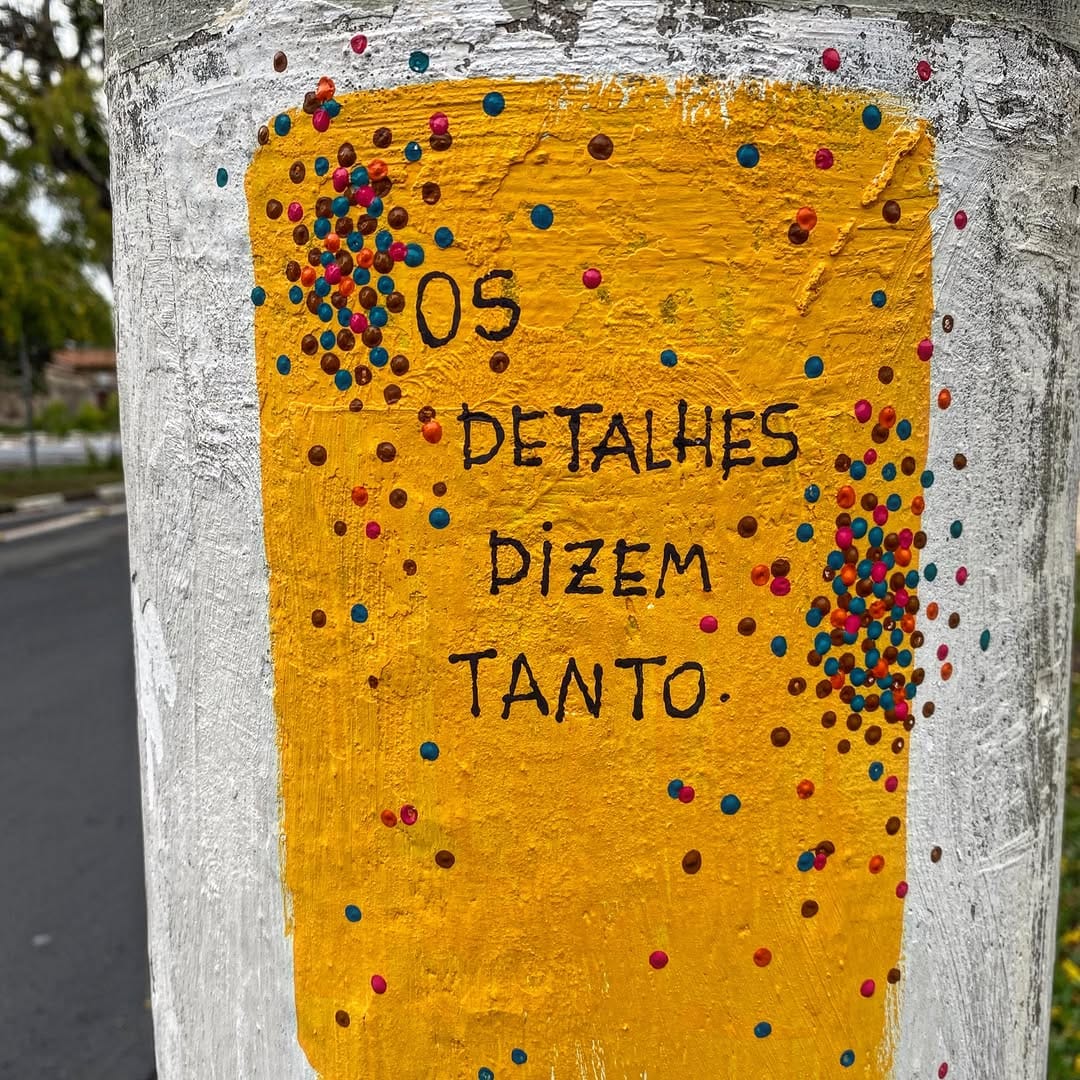 OS
DETALHES
DiZEM
TANTO.